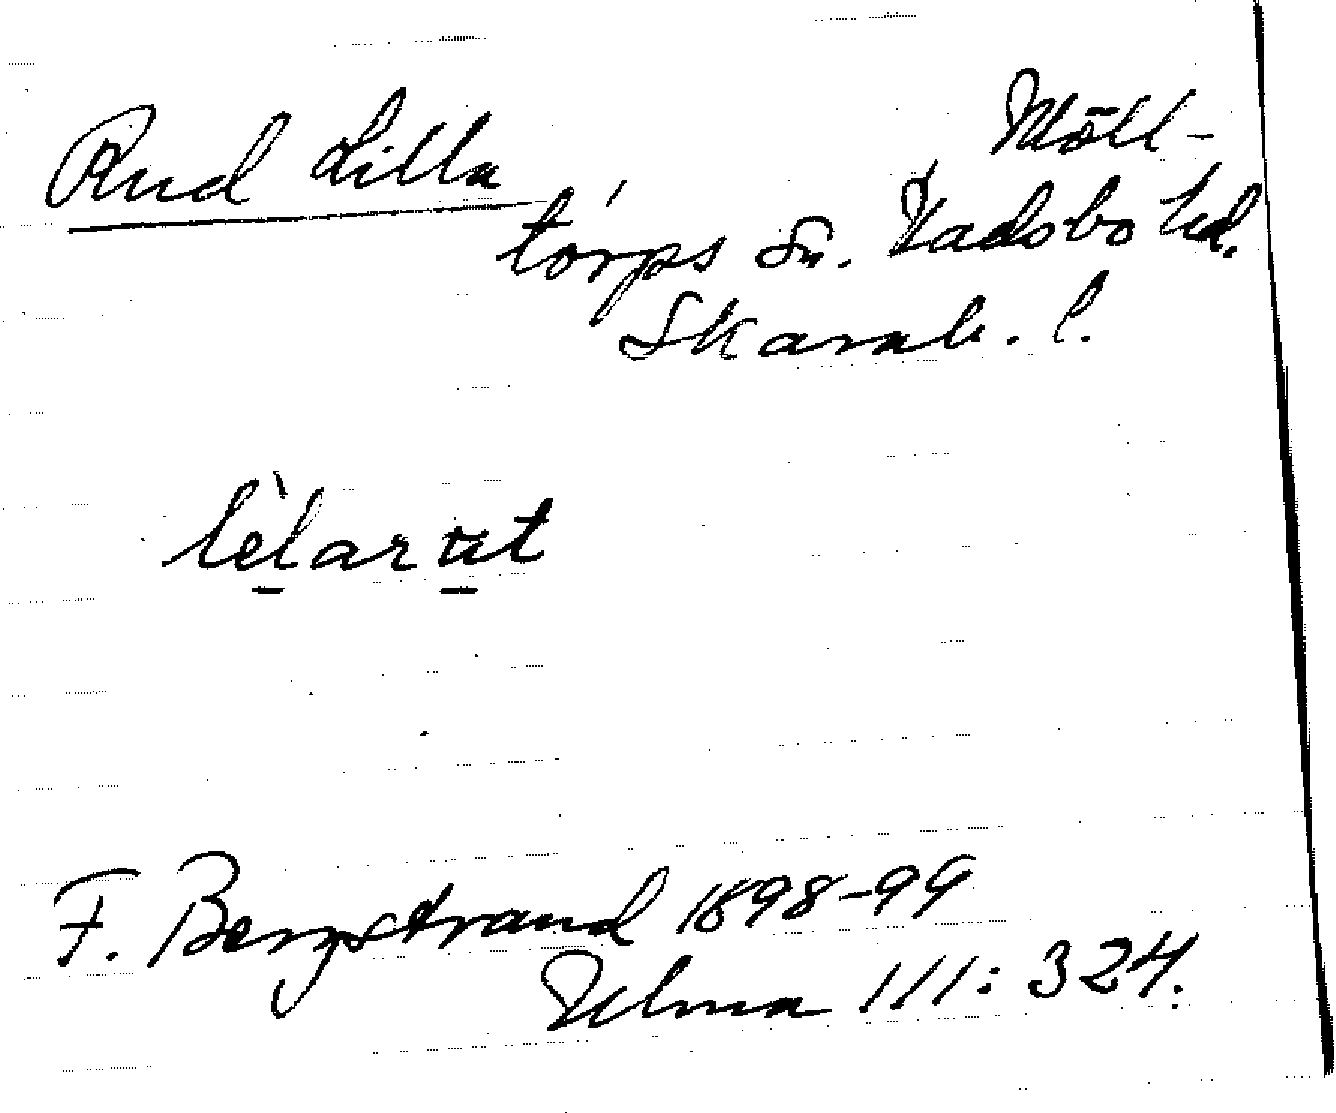 Rud Lilla
Möll-
torps sn. Vadsbo hd.
Skarab. l.
F. Bergstrand 1898-99
Ulma 111: 324.